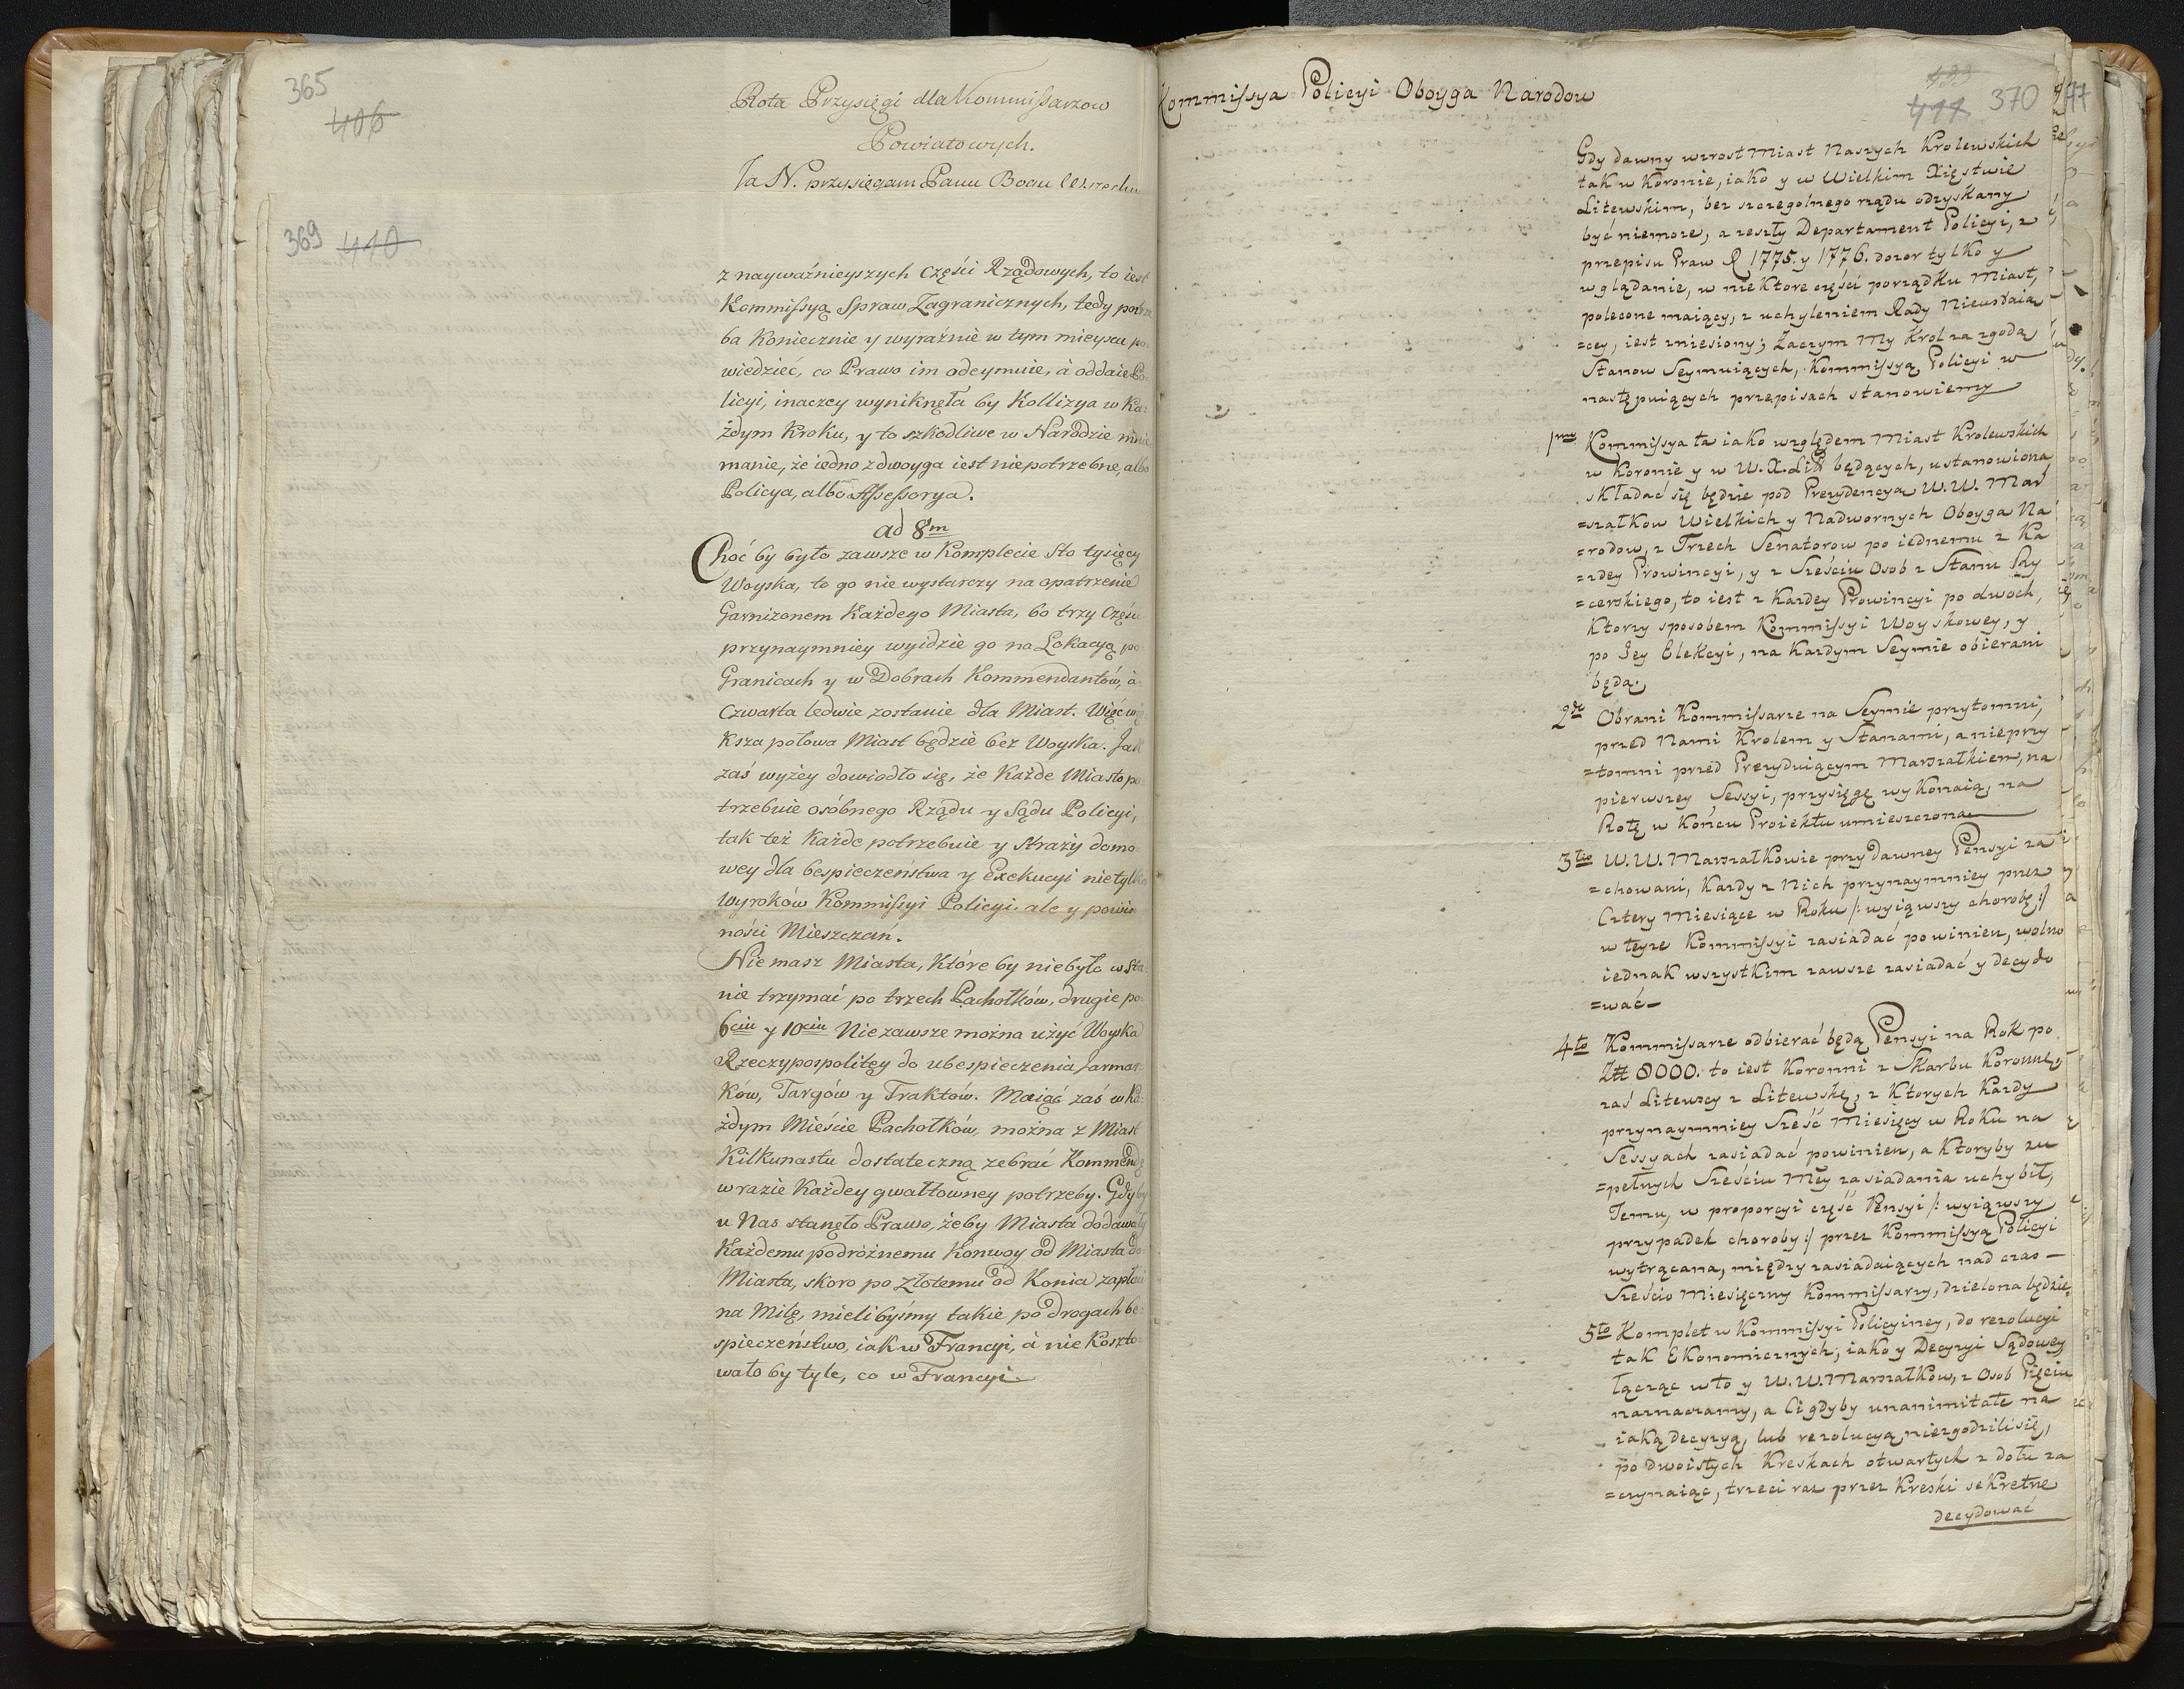 365
406
Rota Przysięgi dla Kommissarzow
Powiatowych.
Ja N. przysięgam Panu Bogu
369 410
z naywaźnieyszych Części Rządowych, to iest
Kommissyą Spraw Zagranicznych, tedy potrze
ba Koniecznie y wyraźnie w tym mieyscu po
wiedzieć, co Prawo im odeymuie, à oddaie Po
licyi, inaczey wyniknęła by Kollizya w Ka:
żdym Kroku, y to szkodliwe w Narodzie mnie
manie, że iedno z dwoyga iest niepotrzebne, albo
Policya, albo Assessorya.
ad 8m
Choć by było zawsze w Komplecie Sto tysięcy
Woyska, to go nie wystarczy na opatrzenie
Garnizonem Każdego Miasta, bo trzy Części
przynaymniey wyidzie go na Lokacyą po
Granicach y w Dobrach Kommendantów, à
czwarta ledwie zostanie dla Miast. Więc wię
Ksza połowa Miast będzie bez Woyska. Jak
zaś wyżey dowiodło się, że Każde Miasto po
trzebuie osóbnego Rządu y Sądu Policyi,
tak też Każde potrzebuie y Straży domo
wey dla bespieczeństwa y Exekucyi nie tylko
wyroków Kommissyi Policyi. ale y powin
ności Mieszczań.
Nie masz Miasta, Któreby niebyło w Sta:
nie trzymać po trzech Pachołków, drugie po
6ciu y 10ciu Niezawsze można użyć Woyska
Rzeczypospolitey do ubespieczenia Jarmar
ków, Targów y Traktów. Maiąc zaś w Ka:
żdym Mieście Pachołków, można z Miast
Kilkunastu dostateczną zebrać Kommendę
w razie Każdey gwałtowney potrzeby. Gdyby
u Nas stanęło Prawo, żeby Miasta dodawały
Każdemu podróżnemu Konwoy od Miasta do
Miasta, skoro po złotemu od Konia zapłaci
na Milę, mielibyśmy takie po drogach be:
spieczeństwo, iak w Francyi, à nie Koszto:
wało by tyle, co w Francyi.
Kommissya Policyi Oboyga Narodow
411 370
Gdy dawny wzrost Miast Naszych Krolewskich
tak w Koronie, iako y w Wielkim Xięstwie
Litewskim, bez szczegolnego rządu odzyskany
być niemoze, a zeszły Departament Policyi, z
przepisu Praw R 1775. y 1776. dozor tylko y
wglądanie, w niektore części porządku Miast,
polecone maiący, z uchyleniem Rady Nieustaią
=cey, iest zniesiony; Zaczym My Krol za zgodą
Stanow Seymuiących, Kommissyą Policyi w
następuiących przepisach stanowiemy
1mo Kommissya ta iako względem Miast Krolewskich
w Koronie y w W.X.Litt będących, ustanowiona
składać się będzie pod Prezydencyą W.W. Mar
=szałkow Wielkich y Nadwornych Oboyga Na
=rodow, z Trzech Senatorow po iednemu z Ka
=zdey Prowincyi, y z Sześciu Osob z Stanu Ry
=cerskiego, to iest z Kazdey Prowincyi po dwoch,
Ktorzy sposobem Kommissyi Woyskowey, y
po Jey Elekcyi, na Kazdym Seymie obierani
będą.
2do Obrani Kommissarze na Seymie przytomni,
przed Nami Krolem y Stanami, a nieprzy
=tomni przed Prezyduiącym Marszałkiem, na
pierwszey Sessyi, przysięgę wykonaią, na
Rotę w Końcu Proiektu umieszczoną
3tio W.W. Marszałkowie przy dawney Pensyi za
=chowani, Kazdy z Nich przynaymniey przez
Cztery Miesiące w Roku /: wyiąwszy chorobę :/
w teyze Kommissyi zasiadać powinien, wolno
iednak wszystkim zawsze zasiadać y decydo
=wać
4to Kommissarze odbierać będą Pensyi na Rok po
Ztt 8000. to iest Koronni z Skarbu Koronne,
zaś Litewscy z Litewskę, z Ktorych Kazdy
przynaymniey Sześć Miesięcy w Roku na
Sessyach zasiadać powinien, a Ktoryby zu
=pełnych Sześciu Mcy zasiadania uchybił,
Temu, w proporcyi część Pensyi /: wyiąwszy
przypadek choroby :/ przez Kommissyą Policyi
wytrącana, między zasiadaiących nad czas
Sześcio Miesięczny Kommissarzy, dzielona będzie.
5to Komplet w Kommissyi Policyiney, do rezolucyi
tak Ekonomicznych, iako y Decyzyi Sądowey
łącząc w to y W.W. Marszałkow, z Osob Pięciu
naznaczamy, a Ci gdyby unanimitate na
iaką decyzyą, lub rezolucyą niezgodzili się,
po dwoistych Kreskach otwartych z dołu za
=czynaiąc, trzeci raz przez Kreski sekretne
decydować